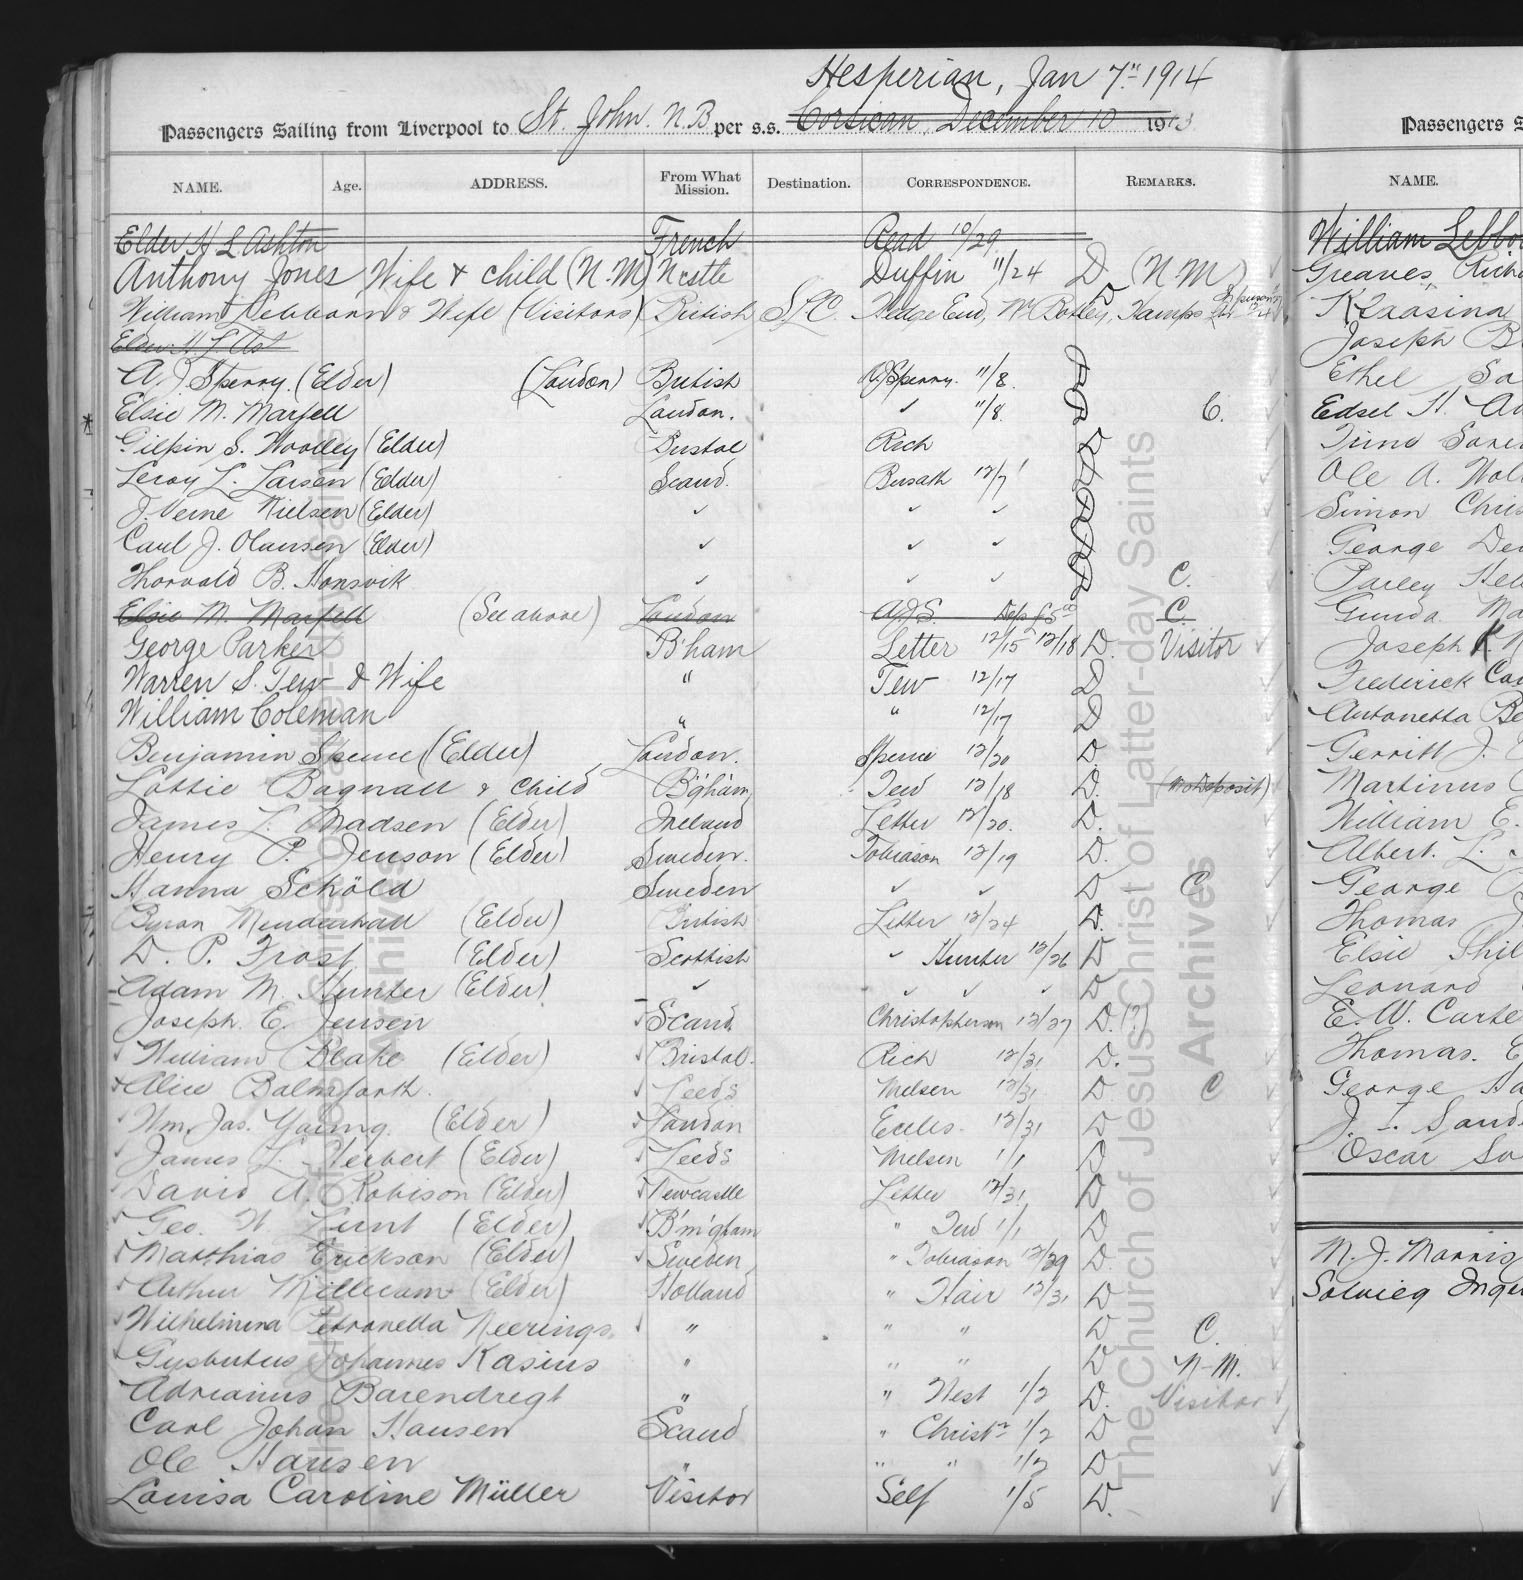 Hesperian, Jan 7th 1914
Passengers Sailing from Liverpool to St. John. N.B per s.s. Corsican, December 10 1913
Passengers S
NAME. Age. ADDRESS. From What Mission. Destination. CORRESPONDENCE. REMARKS.
NAME.
Elder H L Ashton French Read 10/29
Anthony Jones Wife & child (N.M) Ncstle Duffin 11/24 D. (N.M)
William Lebborn & Wife (Visitors) British SLC. Hedge End, Nr Botley, Hamps
Elder H L Ast
A. J Sperry. (Elder) (London) British AJSperry. 11/8. D
Elsie M. Marfell London. " 11/8. D C.
Gilpin S. Woolley (Elder) Bristol Rich D
Leroy L. Larsen (Elder) Scand. Busath 12/7 D
J. Verne Nielsen (Elder) " " " D
Carl J. Olausen (Elder) " " " D
Thorvald B. Honsvik " " " D C.
Elsie M. Marfell (See above) London AJS. Dep £5 C.
George Parker B'ham Letter 12/15 12/18 D. Visitor
Warren S. Tew & Wife " Tew 12/17 D
William Coleman " " 12/17 D
Benjamin Spence (Elder) London. Spence 12/20 D.
Lottie Bagnall & child B'gham Tew 12/18 D. (No Deposit)
James L. Madsen (Elder) Ireland Letter 12/20. D.
Henry P. Jenson (Elder) Sweden. Tobiason 12/19 D.
Hanna Schöld Sweden " " D C
Byron Mendenhall (Elder) British Letter 12/24 D.
D. P. Frost (Elder) Scottish " Hunter 12/26 D
Adam M. Hunter (Elder) " " " " D
Joseph. E. Jensen Scand. Christopherson 12/27 D.(?)
William Blake (Elder) Bristol. Rich 12/31 D.
Alice Balmforth. Leeds Nielsen 12/31 D C
Wm. Jas. Young. (Elder) London Eccles. 12/31 D
James L. Herbert (Elder) Leeds Nielsen 1/1 D
David A. Robison (Elder) Newcastle Letter 12/31 D
Geo. H. Lunt (Elder) B'm'gham " Tew 1/1 D
Matthias Erickson (Elder) Sweden " Tobiason 12/29 D.
Arthur Millicam (Elder) Holland " Hair 12/31 D
Wilhelmina Petronella Neerings. " " " D C.
Gysbertus Johannes Kasius " " " D N-M.
Adrianus Barendregt " " Nest 1/2 D. Visitor
Carl Johan Hansen Scand " Christn 1/2 D
Ole Hansen " " " 1/2 D
Louisa Caroline Müller Visitor Self 1/5 D.
William Lebbo
Greaves, Rich
Klaasina
Joseph B
Ethel Sa
Edsel H. A
Ole A. Wol
Simon Chris
George De
Parley Hel
Gunda Ma
Joseph K.
Frederick Ca
Antonetta Be
Gerritt J.
Martinus
William E.
Albert. L.
George
Thomas J
Elsie Phil
Leonard
E. W. Carte
Thomas. E
George Ha
J. I. Sand
Oscar So
M. J. Morris
Solvieg Inge
The Church of Jesus Christ of Latter-day Saints
Archives